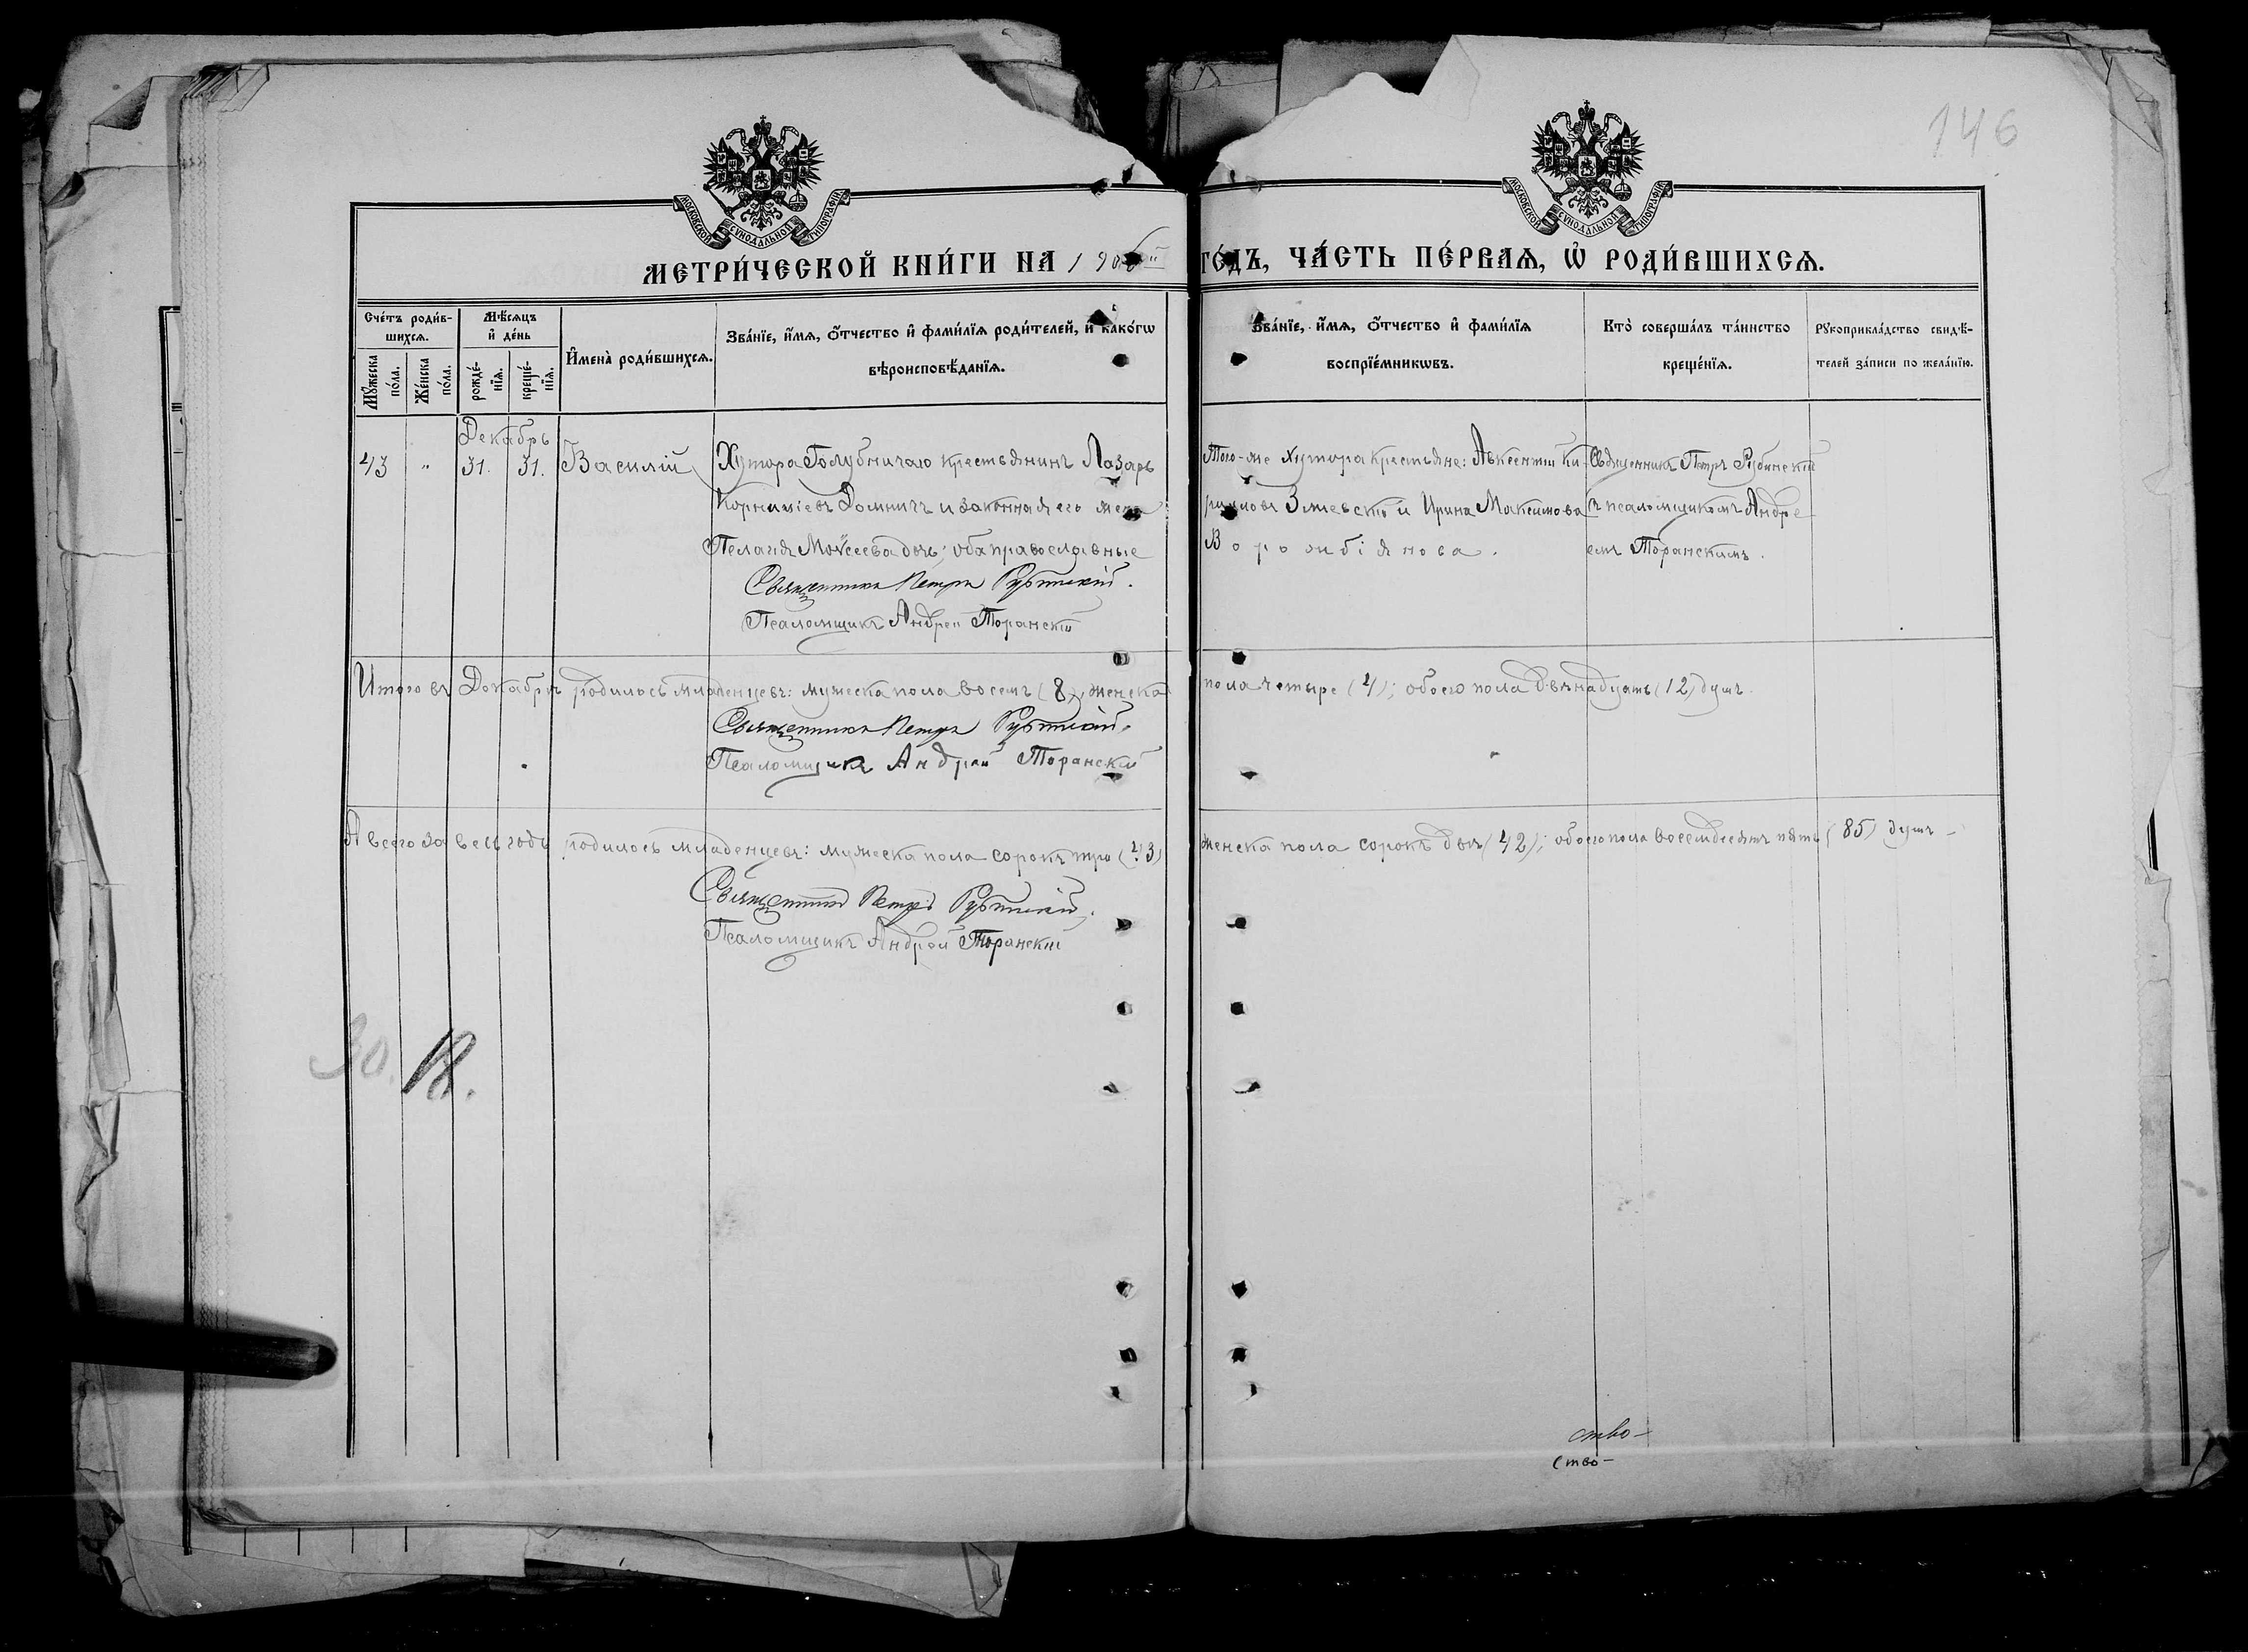 146
МОСКОВСКОЙ СѴНОДАЛЬНОЙ ТИПОГРАФІИ
МОСКОВСКОЙ СѴНОДАЛЬНОЙ ТИПОГРАФІИ
МЕТРИ́ЧЕСКОЙ КНИ́ГИ НА 190
ГО́ДЪ, ЧА́СТЬ ПЕ́РВАѦ, Ѡ҆ РОДИ́ВШИХСѦ.
Сче́тъ роди́в-
шихсѧ.
Мꙋ́жеска по́ла.
Же́нска по́ла.
Мѣ́сѧцъ
и҆ де́нь
рожде́-
нїѧ.
креще́-
нїѧ.
И҆мена̀ роди́вшихсѧ.
Зва́нїе, и҆́мѧ, ѻ҆́тчество и҆ фами́лїѧ роди́телей, и҆ како́гѡ
вѣроисповѣ́данїѧ.
Зва́нїе, и҆́мѧ, ѻ҆́тчество и҆ фами́лїѧ
воспрїе́мникѡвъ.
Кто̀ соверша́лъ та́инство
креще́нїѧ.
Рꙋкоприкла́дство свидѣ́-
телей за́писи по жела́нїю.
Декабрь
43 " 31. 31. Василій
Хутора Голубничаго крестьянинъ Лазарь
Корниліевъ Домничъ и законная его жена
Пелагія Моѵсеева дочь; оба православные
Священникъ Петръ Рубинскій.
Псаломщикъ Андрей Торанскій
Того-же хутора крестьяне: Авксентій Ки-
рилловъ Змеевскій и Ирина Максимова
Священникъ Петръ Рубинскій
съ псаломщикомъ Андре
емъ Торанскимъ.
Итого въ Декабрѣ родилось младенцевъ: мужеска пола восемь (8), женска
пола четыре (4); обоего пола двѣнадцать (12) душъ.
Священникъ Петръ Рубинскій.
Псаломщикъ Андрей Торанскій
А всего за весь годъ родилось младенцевъ: мужеска пола сорокъ три (43)
женска пола сорокъ двѣ (42); обоего пола восемьдесятъ пять (85) душъ –
Священникъ Петръ Рубинскій.
Псаломщикъ Андрей Торанскій
30.
ство –
ство –